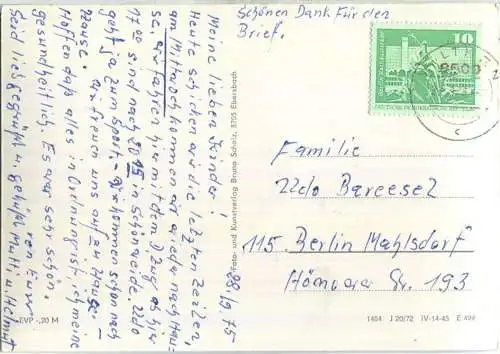 Schönen Dank für den
Brief.
Meine lieben Kinder!
Heute schicken wir die letzten Zeilen,
am Mittwoch kommen wir wieder nach Hau-
se, wir fahren hier mit dem D Zug ab hier
17 und sind nach 20 15 in Schöneweide. Udo
geht ja zum Sport. Wir kommen schon nach
Hause. Wir freuen uns auf zu Hause.
Hoffen daß alles in Ordnung ist, ich meine
gesundheitlich. Es war sehr schön.
Seid lieb gegrüßt u. geküßt Mutti u. Helmut
von Eurer
9.75
Foto- und Kunstverlag Bruno Scholz, 8705 Ebersbach
10
DEUTSCHE DEMOKRATISCHE REPUBLIK
Familie
Udo Bareesel
115 Berlin Mahlsdorf
Str. 193
EVP -,20 M
1404 J 20/72 IV-14-45 E 494